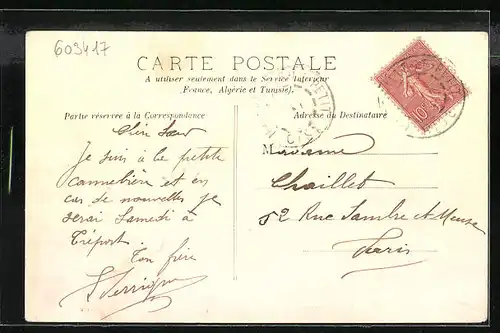 603417
CARTE POSTALE
A utiliser seulement dans le Service Intérieur
(France, Algérie et Tunisie).
Partie réservée à la Correspondance
Adresse du Destinataire
Chère Sœur
Je suis à la petite
cannebière et en
cas de nouvelles je
serai Samedi à
Tréport.
Ton frère
Madame
Chaillet
52 Rue Sambre et Meuse
Paris
10